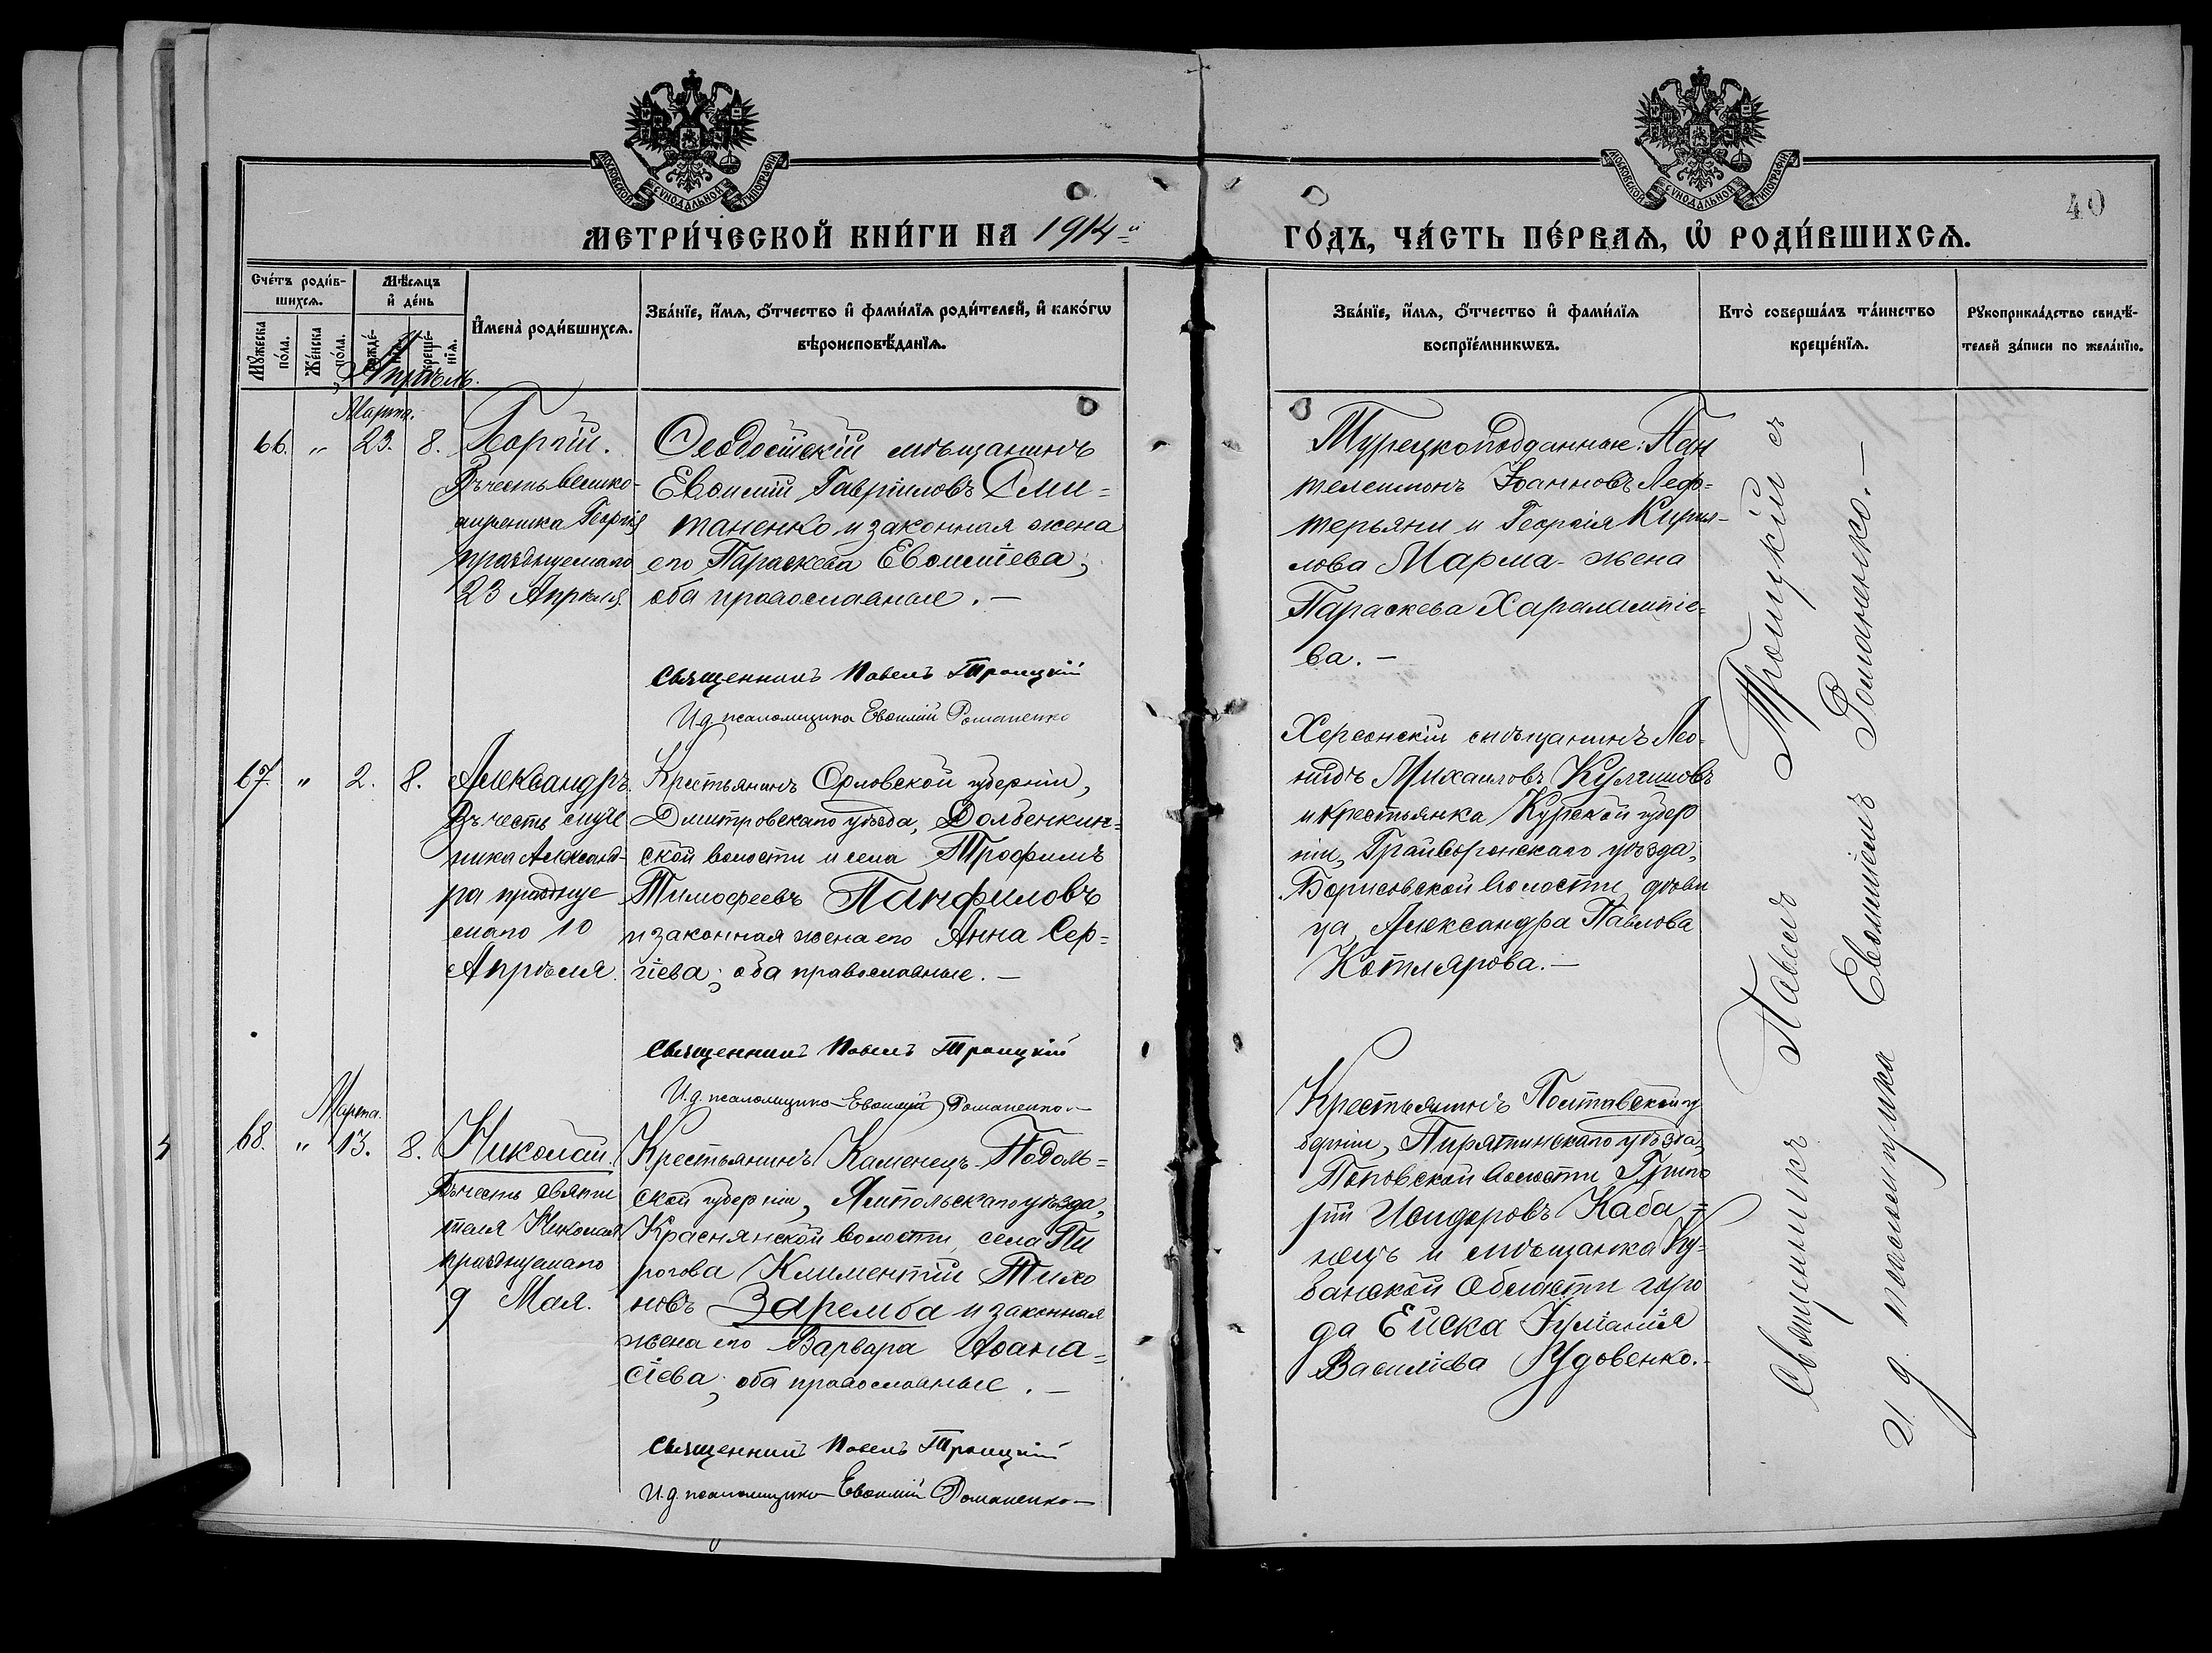 МОСКОВСКОЙ СѴНОДАЛЬНОЙ ТИПОГРАФІИ
МОСКОВСКОЙ СѴНОДАЛЬНОЙ ТИПОГРАФІИ
40
МЕТРИ́ЧЕСКОЙ КНИ́ГИ НА 1914й
ГО́ДЪ, ЧА́СТЬ ПЕ́РВАѦ, Ѡ҆ РОДИ́ВШИХСѦ.
Сче́тъ роди́в-
шихсѧ.
Мꙋжеска
по́ла.
Же́нска
по́ла.
Мѣ́сѧцъ
и҆ де́нь
рожде́-
нїѧ.
креще́-
нїѧ.
И҆мена̀ роди́вшихсѧ.
Зва́нїе, и҆́мѧ, ѻ҆́тчество и҆ фами́лїѧ роди́телей, и҆ како́гѡ
вѣроисповѣ́данїѧ.
Зва́нїе, и҆́мѧ, ѻ҆́тчество и҆ фами́лїѧ
воспрїе́мникѡвъ.
Кто̀ соверша́лъ та́инство
креще́нїѧ.
Рꙋкоприкла́дство свидѣ́-
телей за́писи по жела́нїю.
Апрѣль.
Марта.
66. " 23. 8. Георгій.
Въ честь велико-
мученика Георгія
празднуемаго
23 Апрѣля.
Ѳеодосійскій мѣщанинъ
Евѳимій Гавріиловъ Сми-
таненко и законная жена
его Параскева Евѳиміева;
оба православные. —
Священникъ Павелъ Троицкій
И. д. псаломщика Евѳимій Романенко
Турецкоподданные: Пан
телеимонъ Іоанновъ Леф-
терьяни и Георгія Кирил-
лова Марма - жена
Параскева Харалампіе-
ва. —
67. " 2. 8. Александръ.
Въ честь муче
ника Александ-
ра празднуе
маго 10
Апрѣля.
Крестьянинъ Орловской губерніи,
Дмитровскаго уѣзда, Долбенкин-
ской волости и села Трофимъ
Тимофеевъ Панфиловъ
и законная жена его Анна Сер-
гіева; оба православные. —
Священникъ Павелъ Троицкій
И. д. псаломщика Евѳимій Романенко —
Херсонскій мѣщанинъ Лео-
нидъ Михаиловъ
и крестьянка Курской губер
ніи, Грайворонскаго уѣзда,
Борисовской волости, дѣви
ца, Александра Павлова
Котлярова. —
Марта.
68. " 13. 8. Николай.
Въ честь Святи
теля Николая
празднуемаго
9 Мая.
Крестьянинъ Каменецъ-Подоль-
ской губерніи, Ямпольскаго уѣзда,
Краснянской волости, села Пи
рогова Климентій Тихо
новъ Заремба и законная
жена его Варвара Аѳана-
сіева; оба православные. —
Священникъ Павелъ Троицкій
И. д. псаломщика Евѳимій Романенко —
Крестьянинъ Полтавской гу
берніи, Пирятинскаго уѣзда,
Поповской волости Григо
рій Исидоровъ Каба-
нецъ и мѣщанка Ку-
банской Области горо
да Ейска Іуліанія
Василіева Удовенко. -
Священникъ Павелъ Троицкій съ
И. д. псаломщика Евѳиміемъ Романенко. —